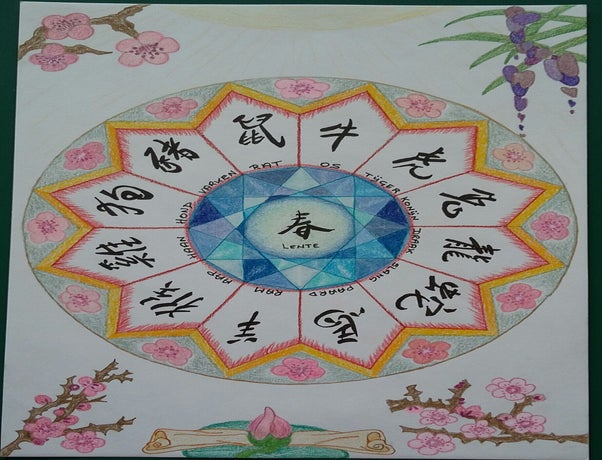 鼠
牛
虎
兔
龍
蛇
馬
羊
猴
雞
狗
豬
RAT
OS
TIJGER
KONIJN
DRAAK
SLANG
PAARD
RAM
AAP
HAAN
HOND
VARKEN
春
LENTE